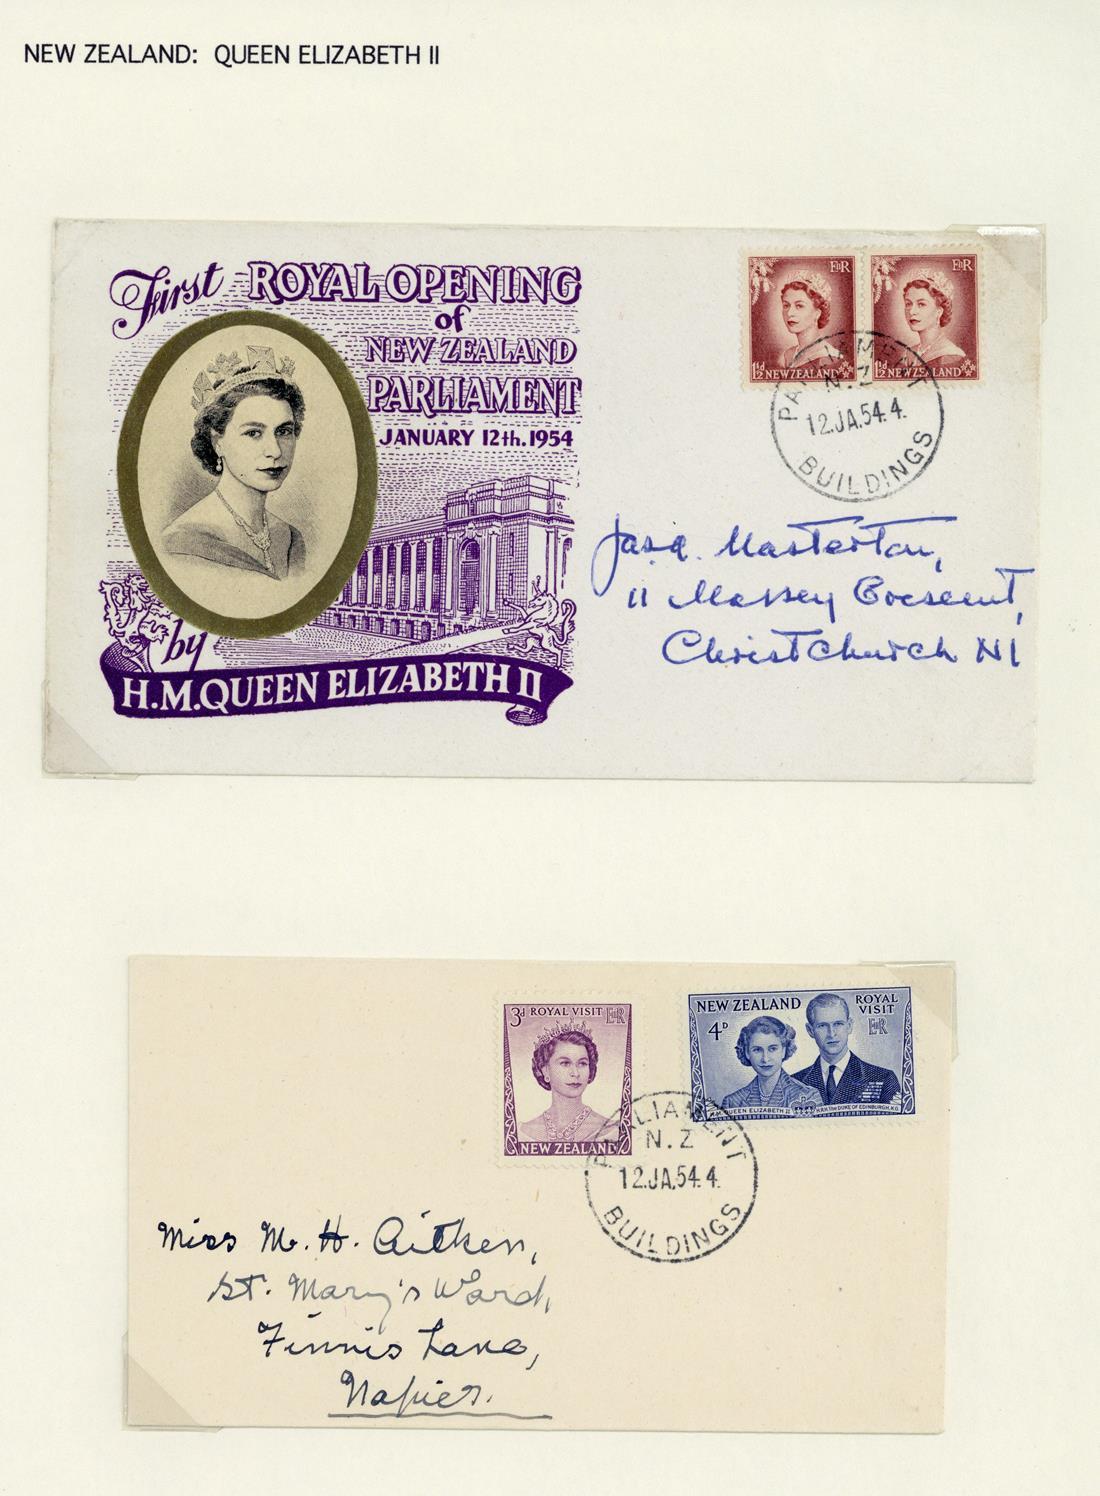 NEW ZEALAND: QUEEN ELIZABETH II
First ROYAL OPENING
of
NEW ZEALAND
PARLIAMENT
JANUARY 12th. 1954
by
H.M. QUEEN ELIZABETH II
E II R
1½d NEW ZEALAND
E II R
1½d NEW ZEALAND
PARLIAMENT
N.Z
12.JA.54.4.
BUILDINGS
Masterton,
11 Massey Crescent,
Christchurch N1
3d ROYAL VISIT E II R
NEW ZEALAND
NEW ZEALAND ROYAL
VISIT
4D E II R
H.M. QUEEN ELIZABETH II H.R.H. THE DUKE OF EDINBURGH, K.G.
PARLIAMENT
N.Z
12.JA.54.4.
BUILDINGS
Miss M. H. Aitken,
St. Mary's Ward,
Finnis Lane,
Napier.